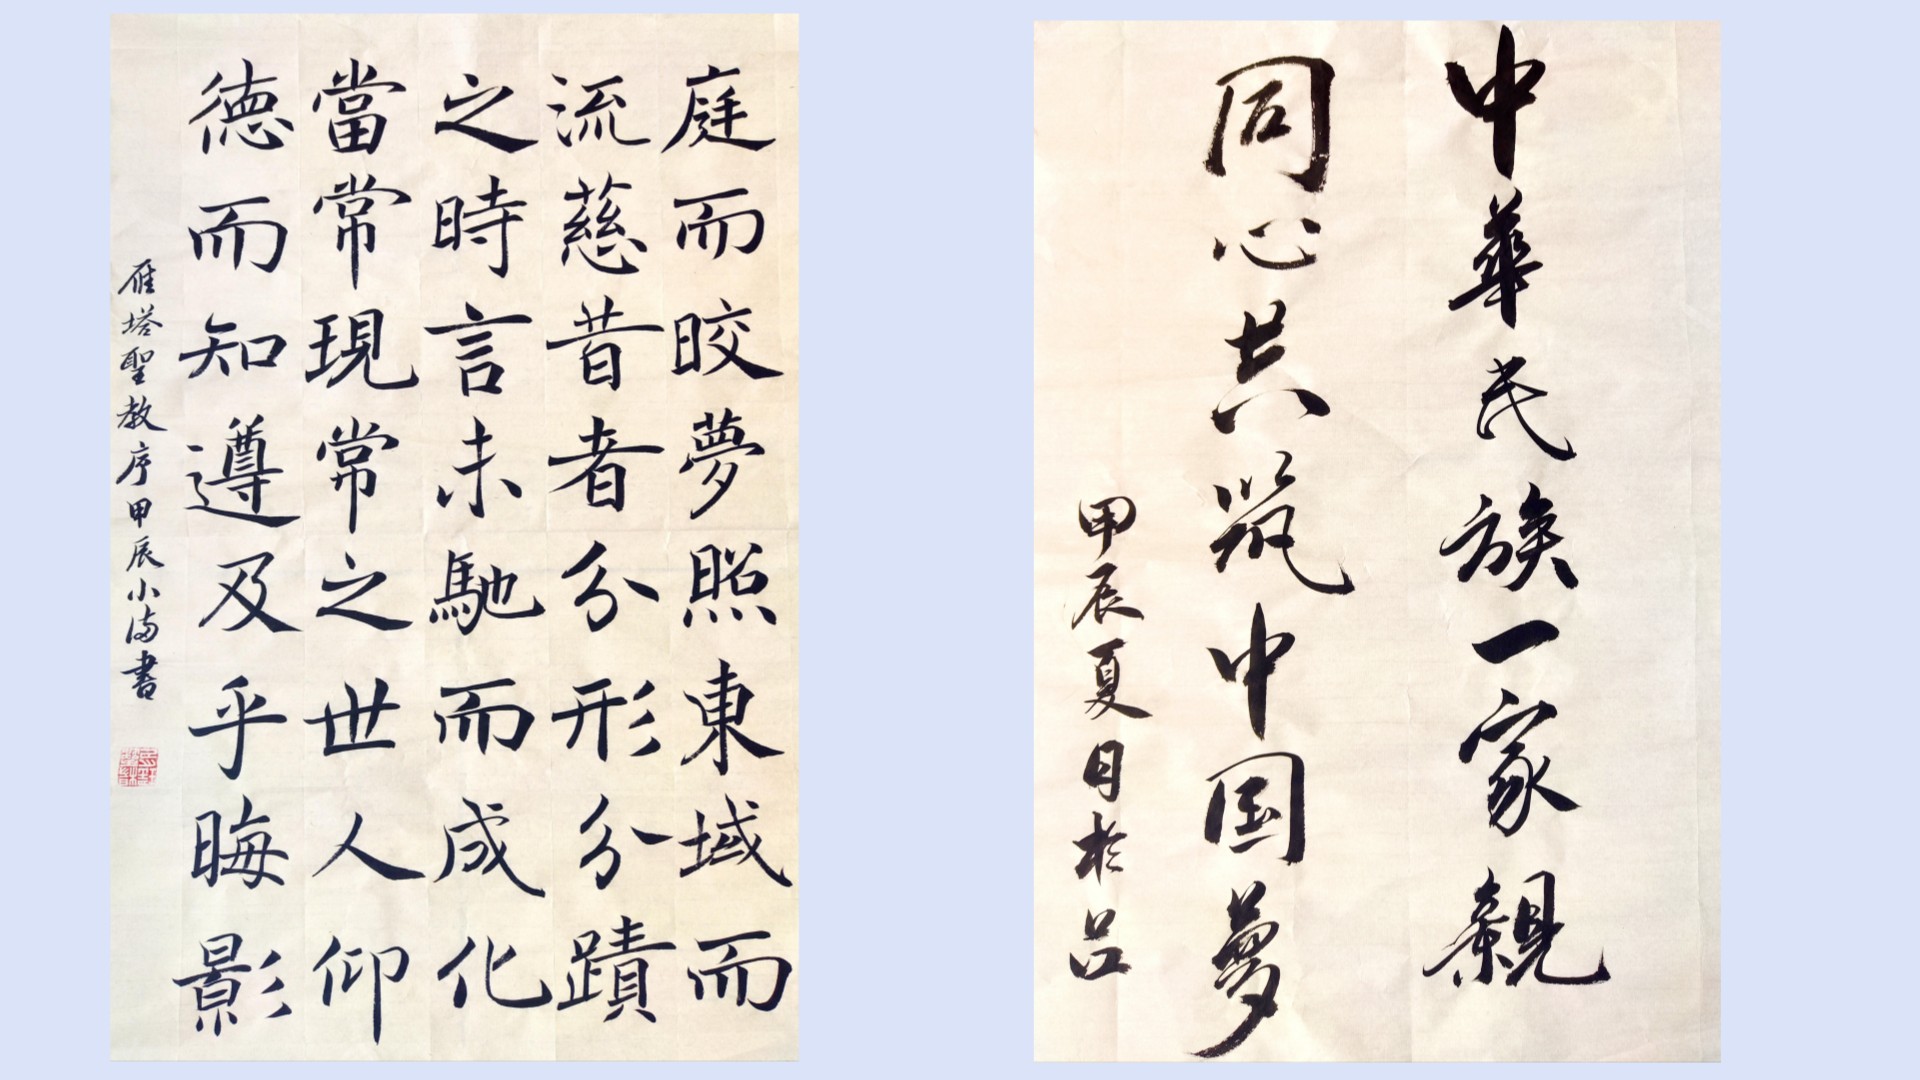 庭而晈夢照東域而
流慈昔者分形分蹟
之時言未馳而成化
當常現常之世人仰
徳而知遵及乎晦影
雁塔聖教序甲辰小满書
中華民族一家親
同心共筑中国夢
甲辰夏日於吕